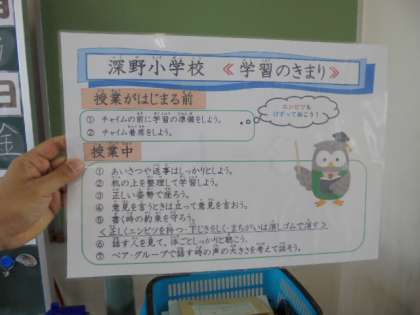 深野小学校 《学習のきまり》
授業がはじまる前
エンピツも
けずっておこう！
① チャイムの前に学習の準備をしよう。
② チャイム着席をしよう。
授業中
① あいさつや返事はしっかりとしよう。
② 机の上を整理して学習しよう。
③ 正しい姿勢で座ろう。
④ 意見を言うときは立って意見を言おう。
⑤ 書く時の約束を守ろう。
＜正しくエンピツを持つ・下じきをしく・まちがいは消しゴムで消す＞
⑥ 話す人を見て、ほごとしっかりと聴こう。
⑦ ペア・グループで話す時の声の大きさを考えて話そう。
日
金